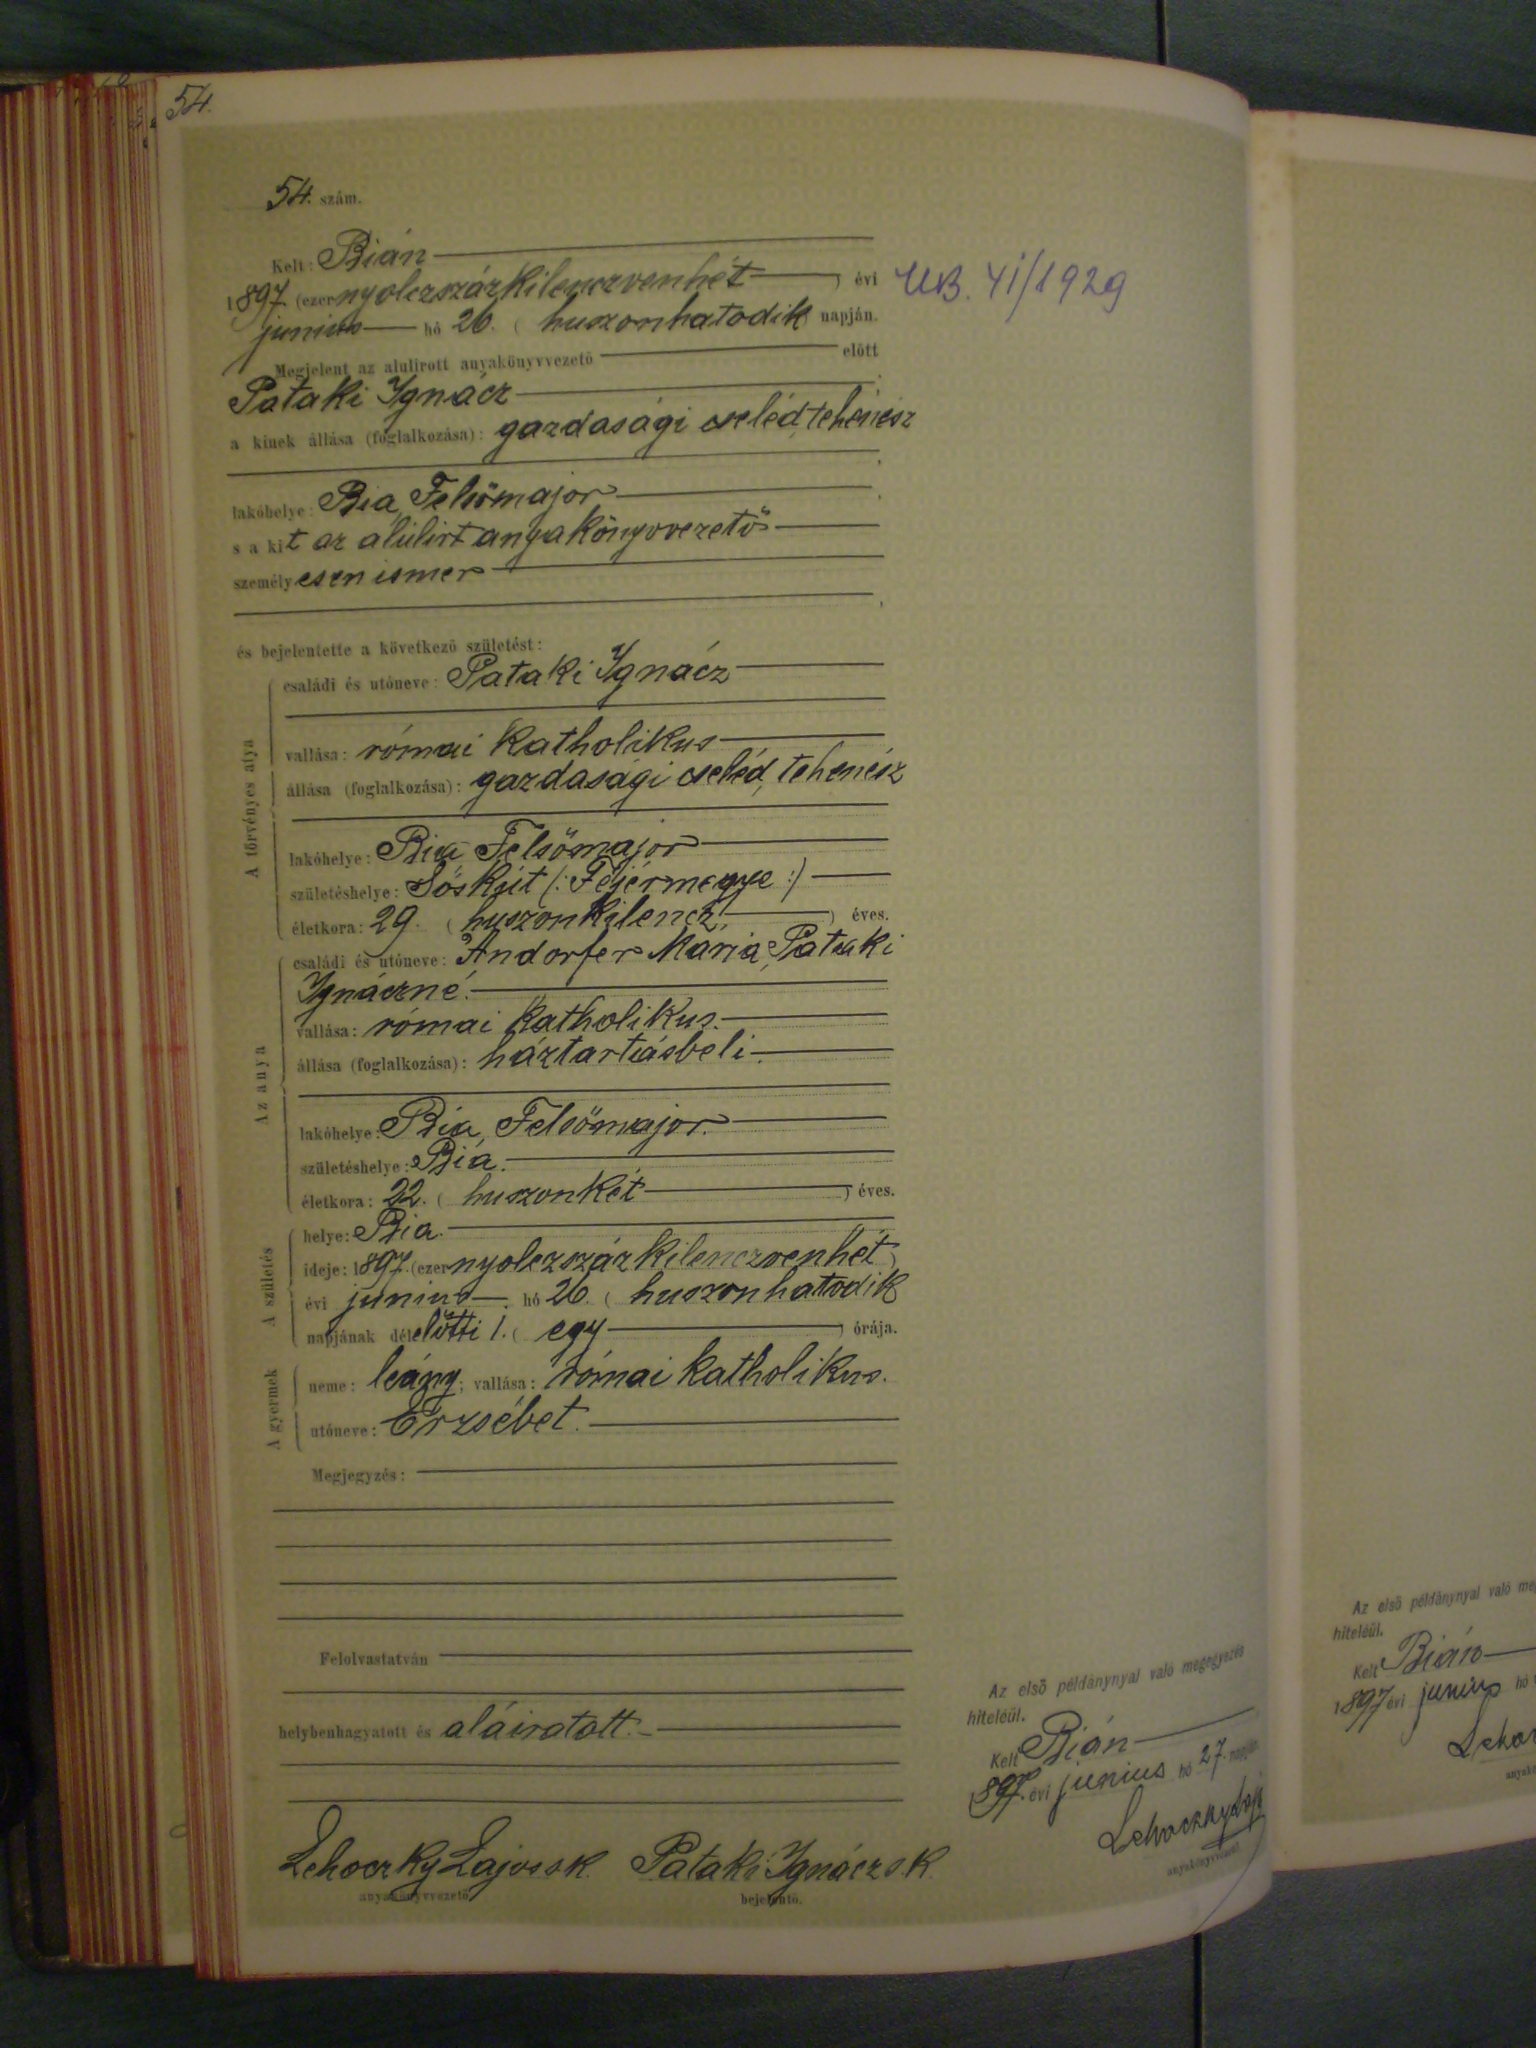 54.
54. szám.
Kelt: Bián
1897. (ezernyolczszázkilenczvenhét) évi
junius hó 26. (huszonhatodik) napján.
UB. 41/1929
Megjelent az alulirott anyakönyvvezető előtt
Pataki Ignácz
a kinek állása (foglalkozása): gazdasági cseléd, tehenész
lakóhelye: Bia, Felsőmajor
s a kit az alúlirt anyakönyvvezető
személyesen ismer
és bejelentette a következő születést:
A törvényes atya
családi és utóneve: Pataki Ignácz
vallása: római katholikus
állása (foglalkozása): gazdasági cseléd, tehenész
lakóhelye: Bia, Felsőmajor
születéshelye: Sóskút (: Fejérmegye :)
életkora: 29. (huszonkilencz) éves.
Az anya
családi és utóneve: Andorfer Mária, Pataki
Ignáczné.
vallása: római katholikus.
állása (foglalkozása): háztartásbeli.
lakóhelye: Bia, Felsőmajor.
születéshelye: Bia.
életkora: 22. (huszonkét) éves.
A születés
helye: Bia.
ideje: 1897. (ezernyolczszázkilenczvenhét)
évi junius hó 26. (huszonhatodik)
napjának délelőtti 1. (egy) órája.
A gyermek
neme: leány; vallása: római katholikus.
utóneve: Erzsébet.
Megjegyzés:
Felolvastatván
helybenhagyatott és aláiratott.
Lehoczky Lajos s.k. Pataki Ignácz s.k.
anyakönyvvezető bejelentő.
Az első példánynyal való megegyezés
hiteléül.
Kelt Bián
1897. évi junius hó 27. napján
Lehoczky Lajos
anyakönyvvezető
Az első példánynyal való
hiteléül.
Kelt Bián
1897 évi junius hó